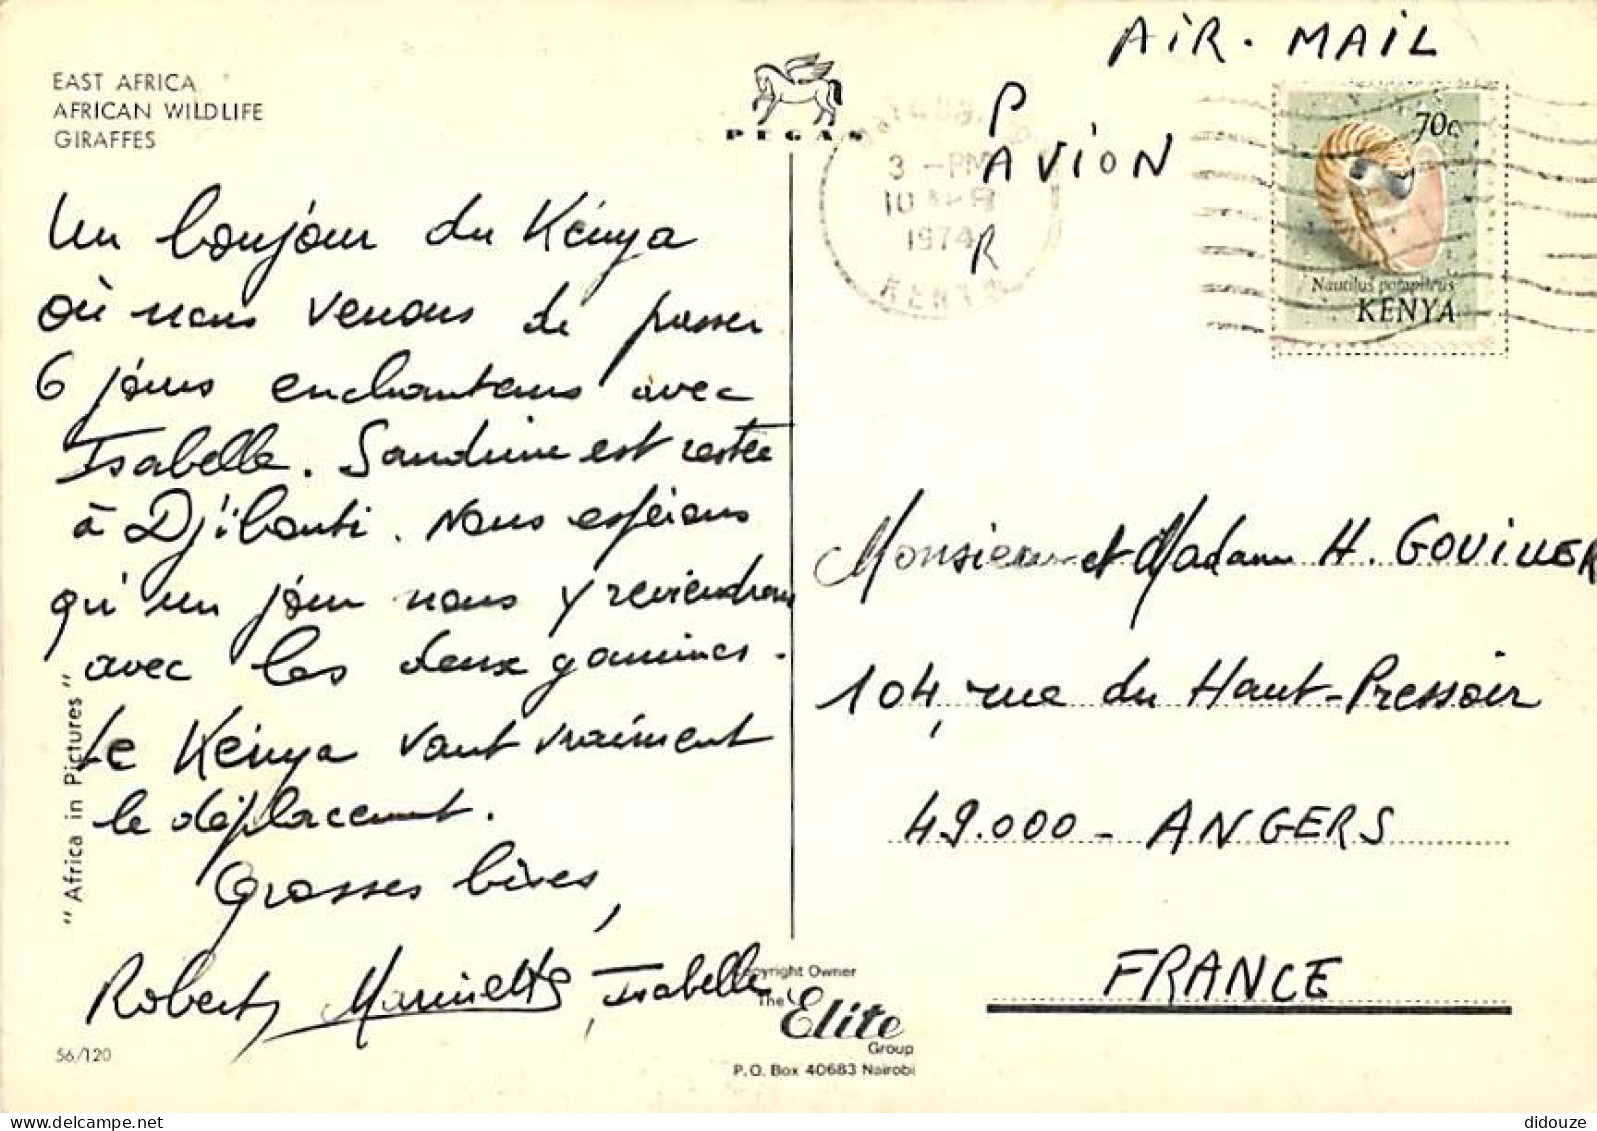 EAST AFRICA
AFRICAN WILDLIFE
GIRAFFES
PEGAS
AIR. MAIL
PAR
AVION
3 - PM
10 APR
1974
KENYA
70c
Nautilus pompilius
KENYA
Un bonjour du Kénya
où nous venons de passer
6 jours enchanteurs avec
Isabelle. Sandrine est restée
à Djibouti. Nous espérons
qu'un jour nous y reviendrons
avec les deux gamines.
Le Kénya vaut vraiment
le déplacement.
Grosses bises,
Robert, Marinette, Isabelle
Monsieur et Madame H. GOUILLER
104, rue du Haut-Pressoir
49.000 - ANGERS
FRANCE
"Africa in Pictures"
56/120
Copyright Owner
The Elite
Group
P.O. Box 40683 Nairobi
didouze @ delcampe.net